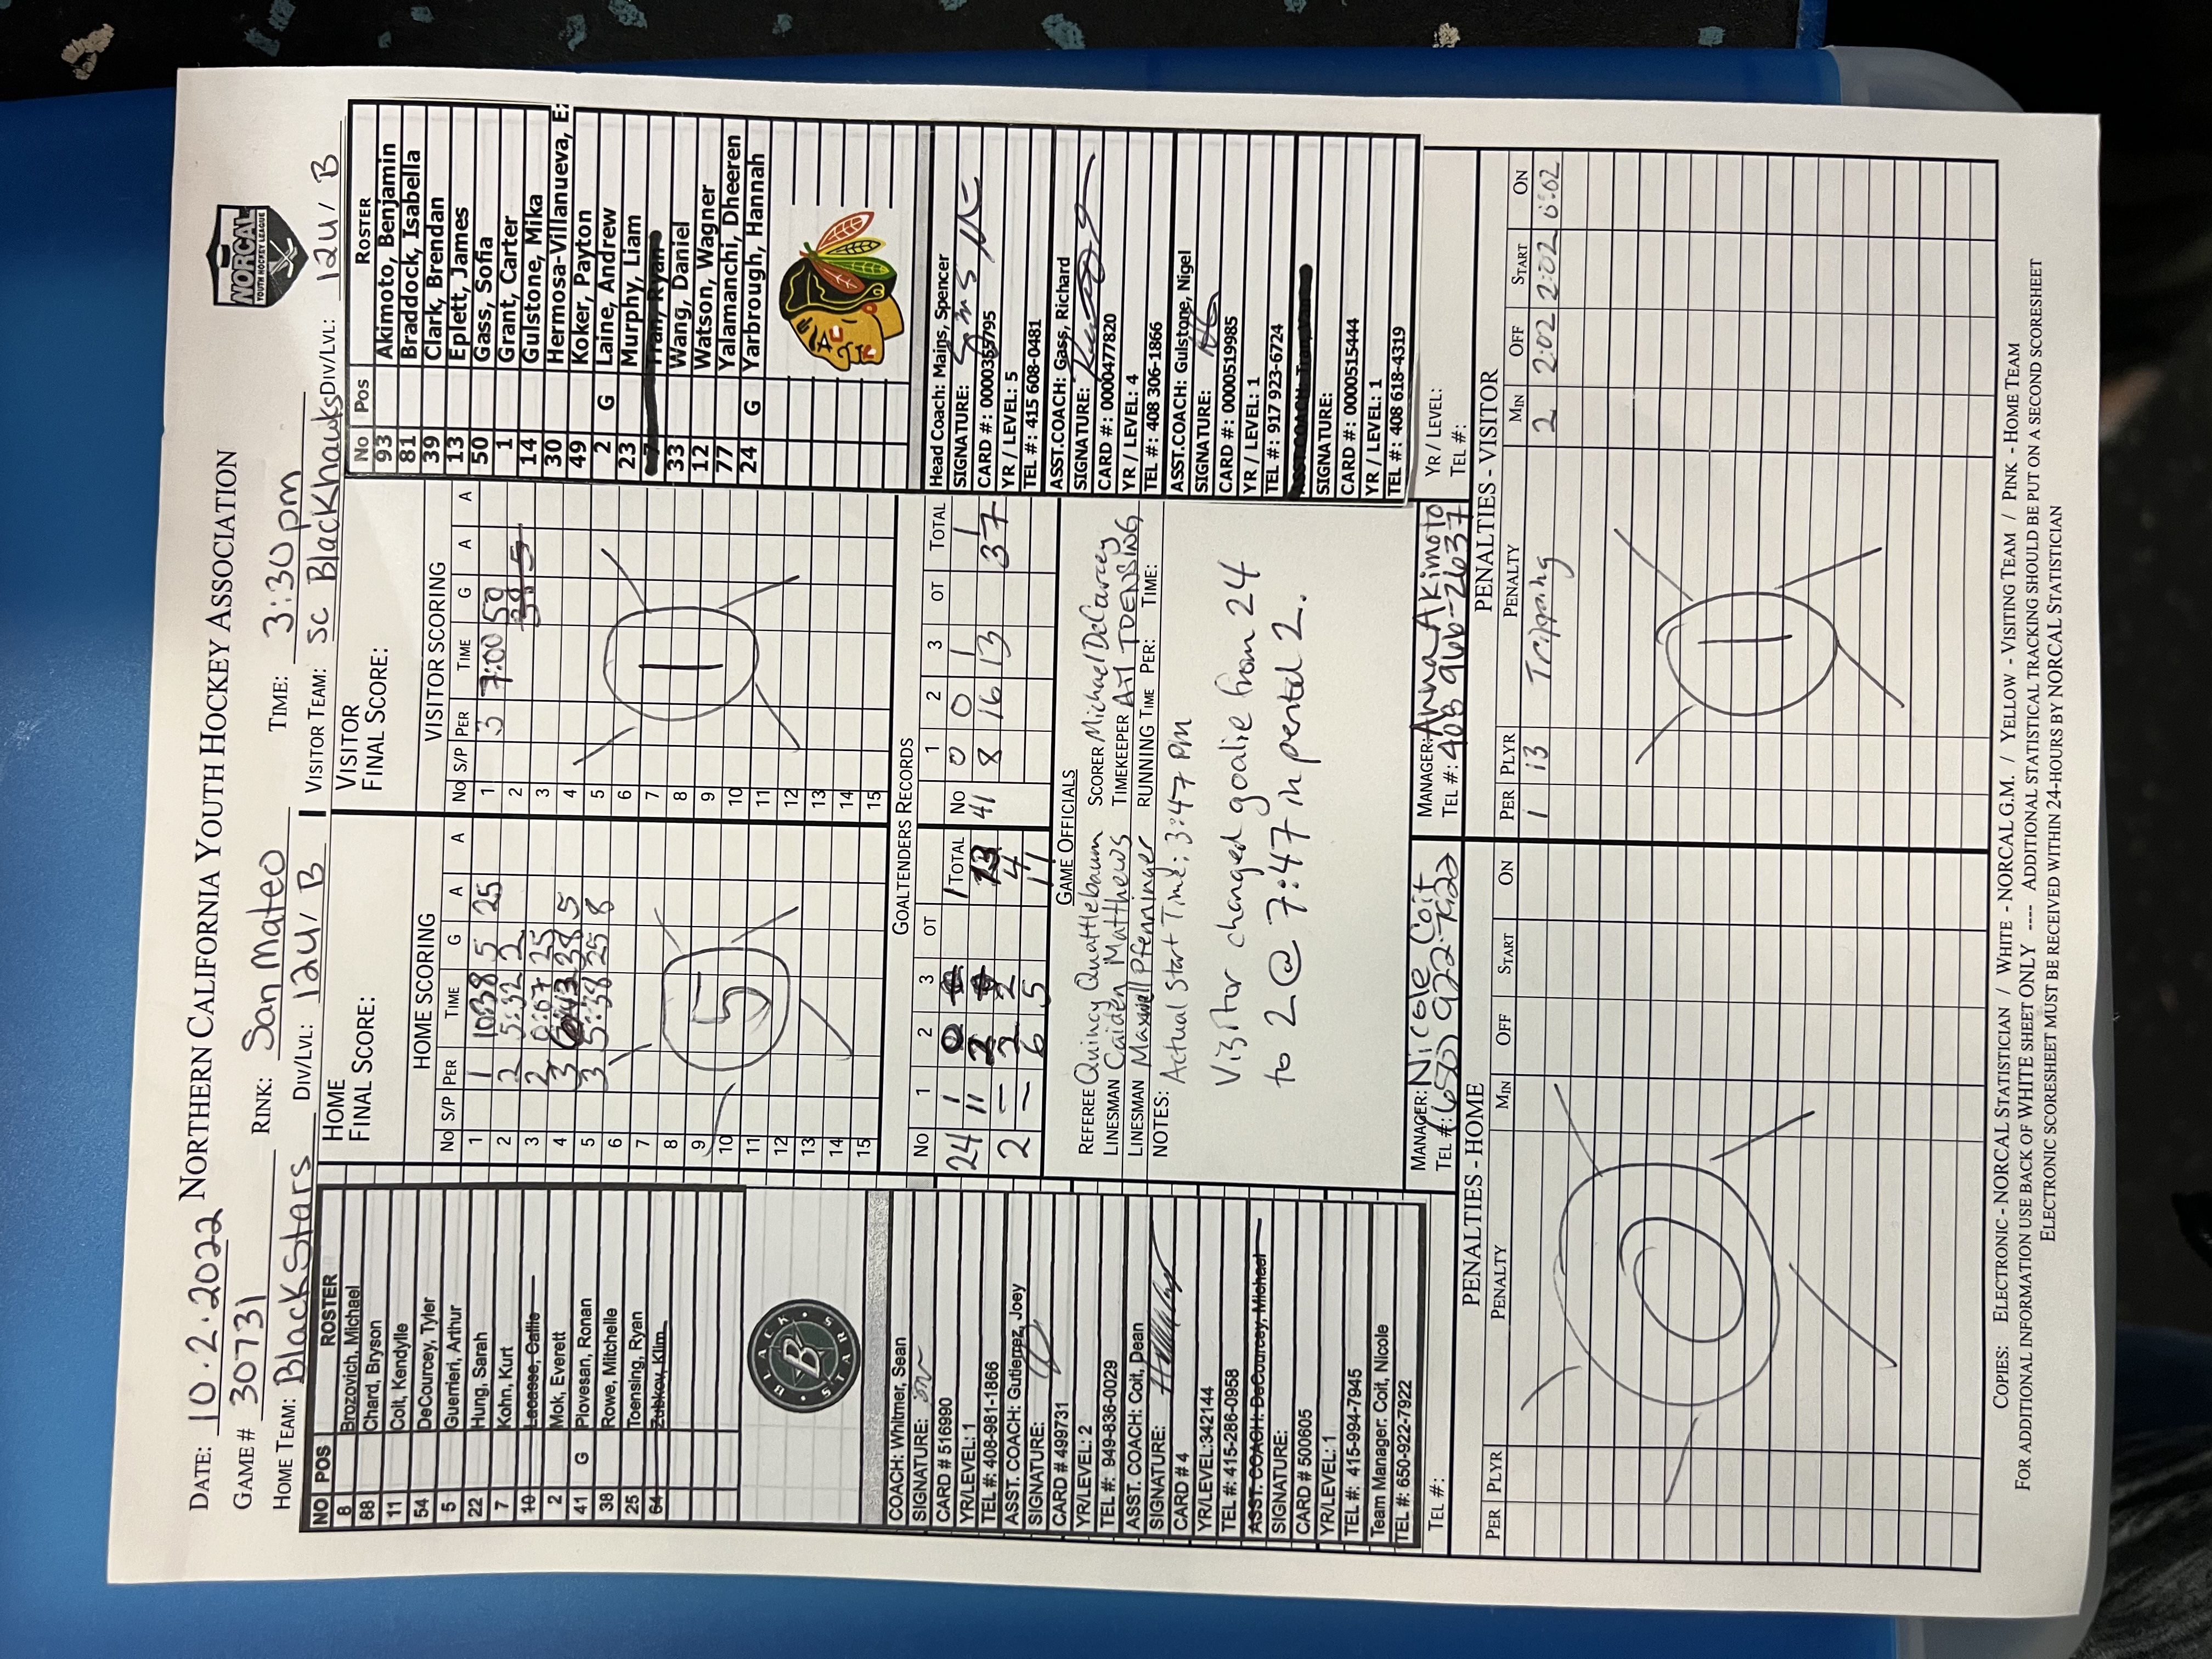 DATE: 10.2.2022 NORTHERN CALIFORNIA YOUTH HOCKEY ASSOCIATION
NORCAL
YOUTH HOCKEY LEAGUE
GAME # 30731 RINK: San Mateo TIME: 3:30pm
HOME TEAM: Blackstars DIV/LVL: 12U/B VISITOR TEAM: SC Blackhawks DIV/LVL: 12U/B
NO POS ROSTER
8 Brozovich, Michael
88 Chard, Bryson
11 Coit, Kendylle
54 DeCourcey, Tyler
5 Guerrieri, Arthur
22 Hung, Sarah
7 Kohn, Kurt
10 Lacasse, Callie
2 Mok, Everett
41 G Piovesan, Ronan
38 Rowe, Mitchelle
25 Toensing, Ryan
64 Zubkov, Klim
BLACK STARS
B
COACH: Whitmer, Sean
SIGNATURE:
CARD # 516990
YR/LEVEL: 1
TEL #: 408-981-1866
ASST. COACH: Gutierrez, Joey
SIGNATURE:
CARD # 499731
YR/LEVEL: 2
TEL #: 949-836-0029
ASST. COACH: Coit, Dean
SIGNATURE:
CARD # 4
YR/LEVEL:342144
TEL #: 415-286-0958
ASST. COACH: DeCourcey, Michael
SIGNATURE:
CARD # 500605
YR/LEVEL: 1
TEL #: 415-994-7945
Team Manager: Coit, Nicole
TEL #: 650-922-7922
TEL #:
HOME
FINAL SCORE:
HOME SCORING
NO S/P PER TIME G A A
1 1 10:38 5 25
2 2 5:32 2
3 2 0:07 25
4 3 38 5
5 3 5:38 25 8
6
7
8
9
10
11
12
13
14
15
5
VISITOR
FINAL SCORE:
VISITOR SCORING
NO S/P PER TIME G A A
1 3 7:00 50
2
3
4
5
6
7
8
9
10
11
12
13
14
15
1
GOALTENDERS RECORDS
NO 1 2 3 OT TOTAL NO 1 2 3 OT TOTAL
24 1 0 1 41 0 0 1 1
11 2 13 8 16 13 37
2 - 2 2 4
- 6 5 11
GAME OFFICIALS
REFEREE Quincy Quattlebaum SCORER Michael DeCourcey
LINESMAN Caiden Matthews TIMEKEEPER Art TOENSING
LINESMAN Maxwell Pfenninger RUNNING TIME PER: TIME:
NOTES: Actual Start Time: 3:47 PM
Visitor changed goalie from 24
to 2 @ 7:47 in period 2.
MANAGER: Nicole Coit
TEL #: (650) 922-7922
MANAGER: Anna Akimoto
TEL #: 408 966-2637
No Pos ROSTER
93 Akimoto, Benjamin
81 Braddock, Isabella
39 Clark, Brendan
13 Eplett, James
50 Gass, Sofia
1 Grant, Carter
14 Gulstone, Mika
30 Hermosa-Villanueva, E
49 Koker, Payton
2 G Laine, Andrew
23 Murphy, Liam
7 Tran, Ryan
33 Wang, Daniel
12 Watson, Wagner
77 Yalamanchi, Dheeren
24 G Yarbrough, Hannah
Head Coach: Mains, Spencer
SIGNATURE:
CARD #: 0000359795
YR / LEVEL: 5
TEL #: 415 608-0481
ASST.COACH: Gass, Richard
SIGNATURE:
CARD #: 0000477820
YR / LEVEL: 4
TEL #: 408 306-1866
ASST.COACH: Gulstone, Nigel
SIGNATURE:
CARD #: 0000519985
YR / LEVEL: 1
TEL #: 917 923-6724
SIGNATURE:
CARD #: 0000515444
YR / LEVEL: 1
TEL #: 408 618-4319
YR / LEVEL:
TEL #:
PENALTIES - HOME
PER PLYR PENALTY MIN OFF START ON
0
PENALTIES - VISITOR
PER PLYR PENALTY MIN OFF START ON
1 13 Tripping 2 2:02 2:02 0:02
1
COPIES: ELECTRONIC - NORCAL STATISTICIAN / WHITE - NORCAL G.M. / YELLOW - VISITING TEAM / PINK - HOME TEAM
FOR ADDITIONAL INFORMATION USE BACK OF WHITE SHEET ONLY ---- ADDITIONAL STATISTICAL TRACKING SHOULD BE PUT ON A SECOND SCORESHEET
ELECTRONIC SCORESHEET MUST BE RECEIVED WITHIN 24-HOURS BY NORCAL STATISTICIAN